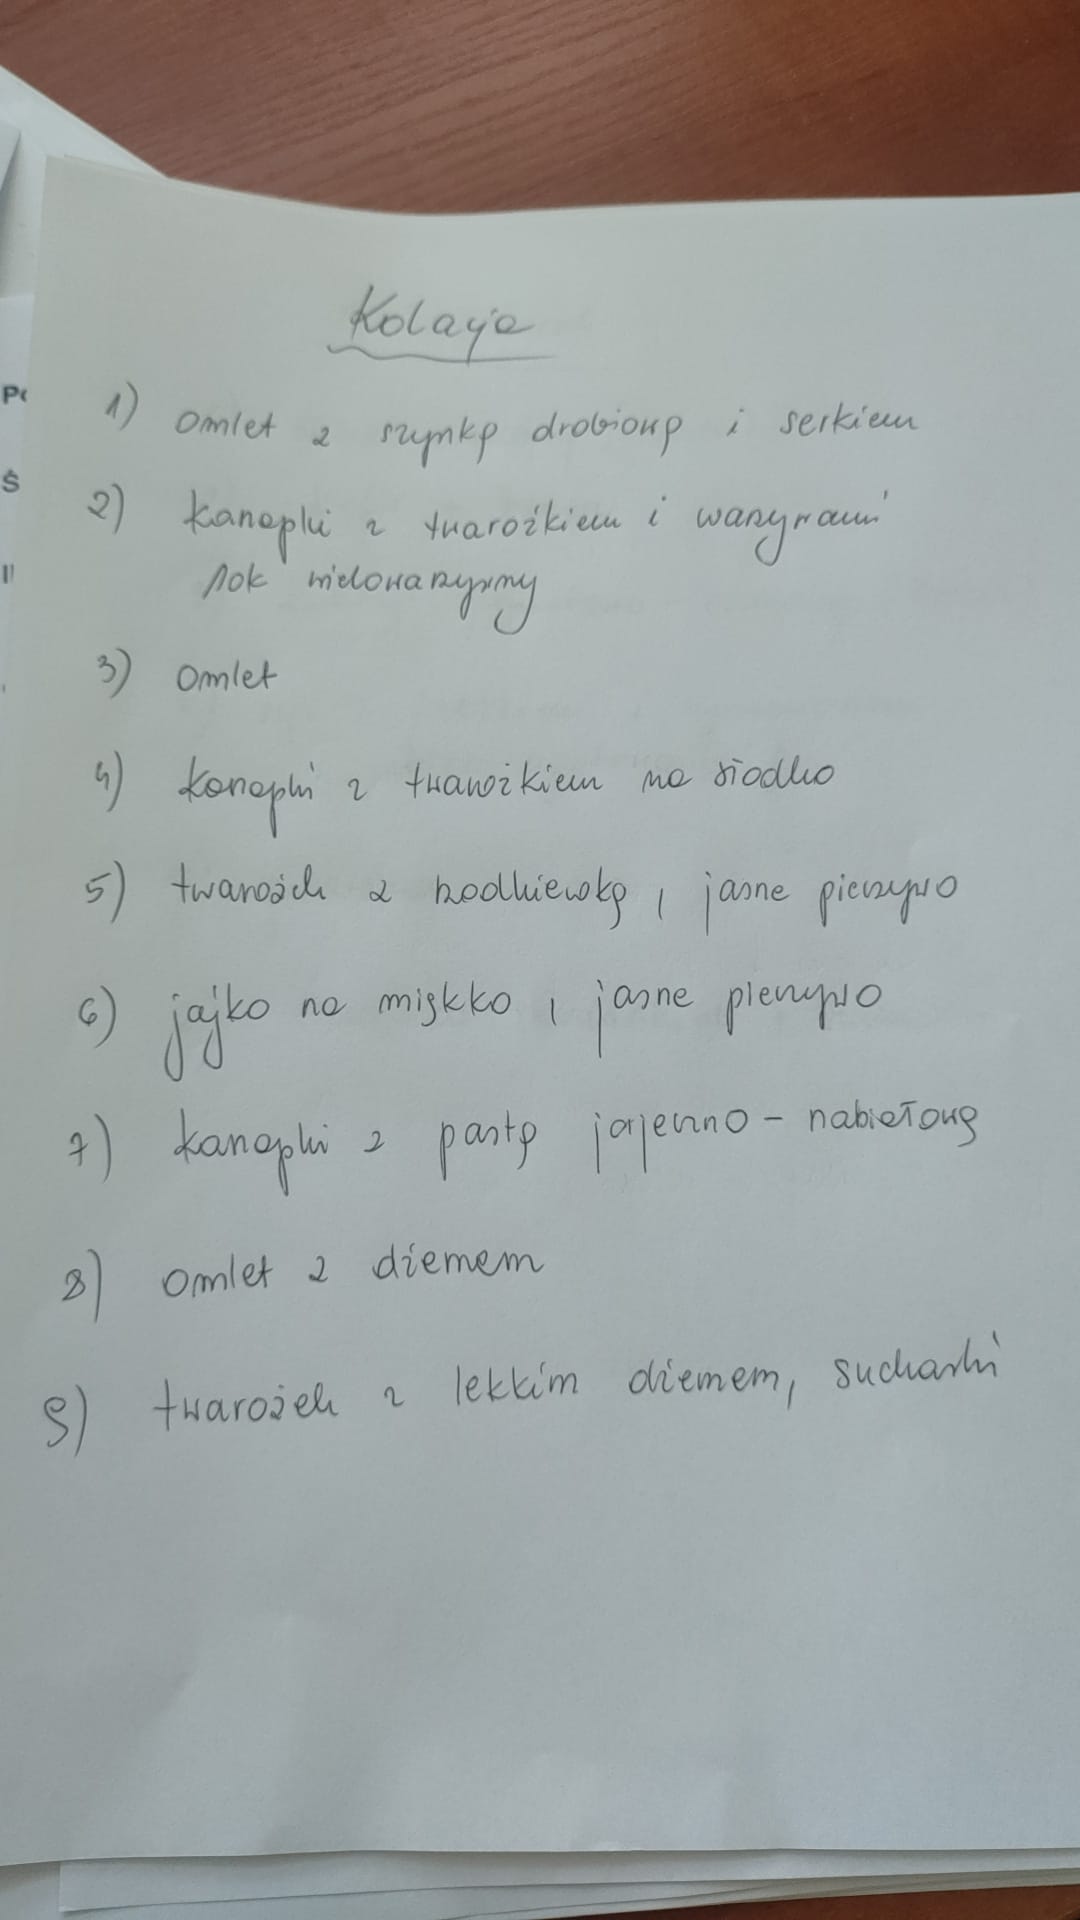 Kolacja
1) omlet z szynką drobiową i serkiem
2) kanapki z twarożkiem i warzywami
sok wielowarzywny
3) omlet
4) kanapki z twarożkiem na słodko
5) twarożek z rzodkiewką, jasne pieczywo
6) jajko na miękko, jasne pieczywo
7) kanapki z pastą jajeczno - nabiałową
8) omlet z dżemem
9) twarożek z lekkim dżemem, sucharki
Po
Ś
II